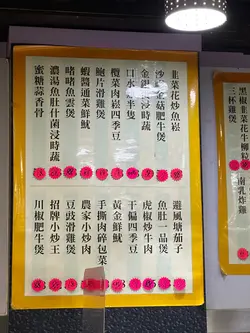 韭菜花炒魚崧
沙嗲金菇肥牛煲
金銀蛋浸時蔬
口水雞半隻
欖菜肉崧四季豆
鮑片滑雞煲
蝦醬通菜鮮魷
啫啫魚雲煲
濃湯魚肚什菌浸時蔬
蜜糖蒜香骨
避風塘茄子
魚肚一品煲
虎椒炒牛肉
干煸四季豆
黃金鮮魷
手撕肉碎包菜
農家小炒肉
豆豉滑雞煲
招牌小炒王
川椒肥牛煲
黑椒韭菜花牛柳粒
三杯雞煲
南乳炸雞